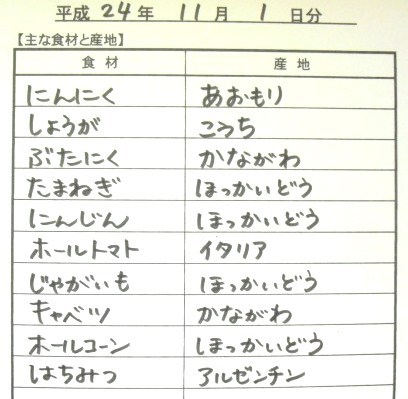 平成 24 年 11 月 1 日分
【主な食材と産地】
食材 産地
にんにく あおもり
しょうが こうち
ぶたにく かながわ
たまねぎ ほっかいどう
にんじん ほっかいどう
ホールトマト イタリア
じゃがいも ほっかいどう
キャベツ かながわ
ホールコーン ほっかいどう
はちみつ アルゼンチン